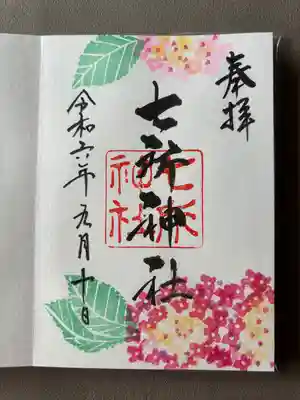 奉拝
七所神社
七所
神社
令和六年 六月十日